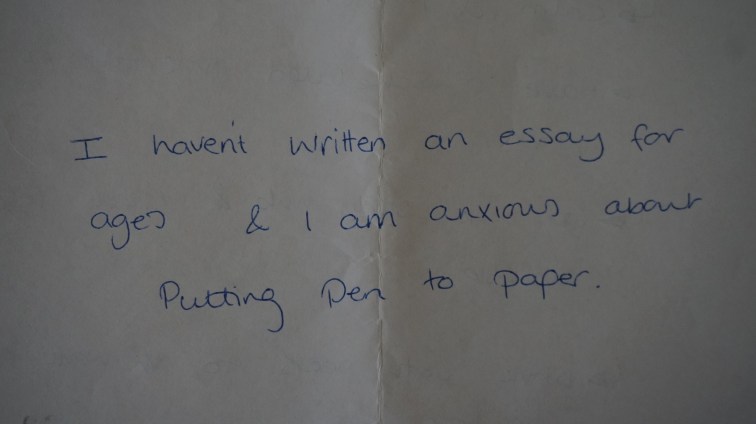 I haven't written an essay for
ages & I am anxious about
Putting Pen to paper.